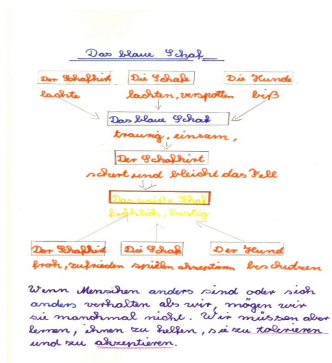 Das blaue Schaf
Der Schafhirt Die Schafe Die Hunde
lachte lachten, verspotten biß
Das blaue Schaf
traurig, einsam,
Der Schafhirt
schert und bleicht das Fell
Das weiße Schaf
fröhlich, lustig
Der Schafhirt Die Schaf Der Hund
froh, zufrieden spielen akzeptieren beschützen
Wenn Menschen anders sind oder sich
anders verhalten als wir, mögen wir
sie manchmal nicht. Wir müssen aber
lernen, ihnen zu helfen, sie zu tolerieren
und zu akzeptieren.